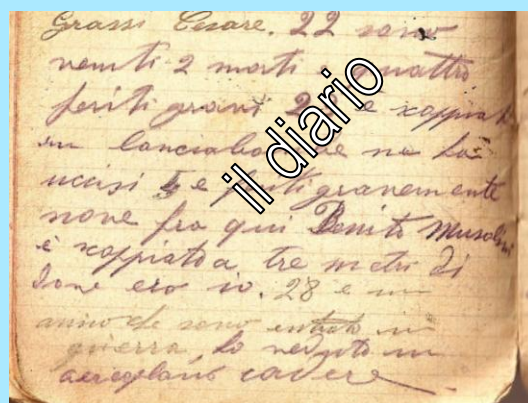 Grassi Cesare. 22 sono
venuti 2 morti quattro
feriti gravi 2 e xoppiato
un lanciabo e ne ha
uccisi 5 e feriti gravemente
nove fra qui Benito Musolini
è xoppiato a tre metri di
dove ero io. 28 e un
anno che sono entrato in
guerra, ho veduto un
aeroplano cadere
il diario